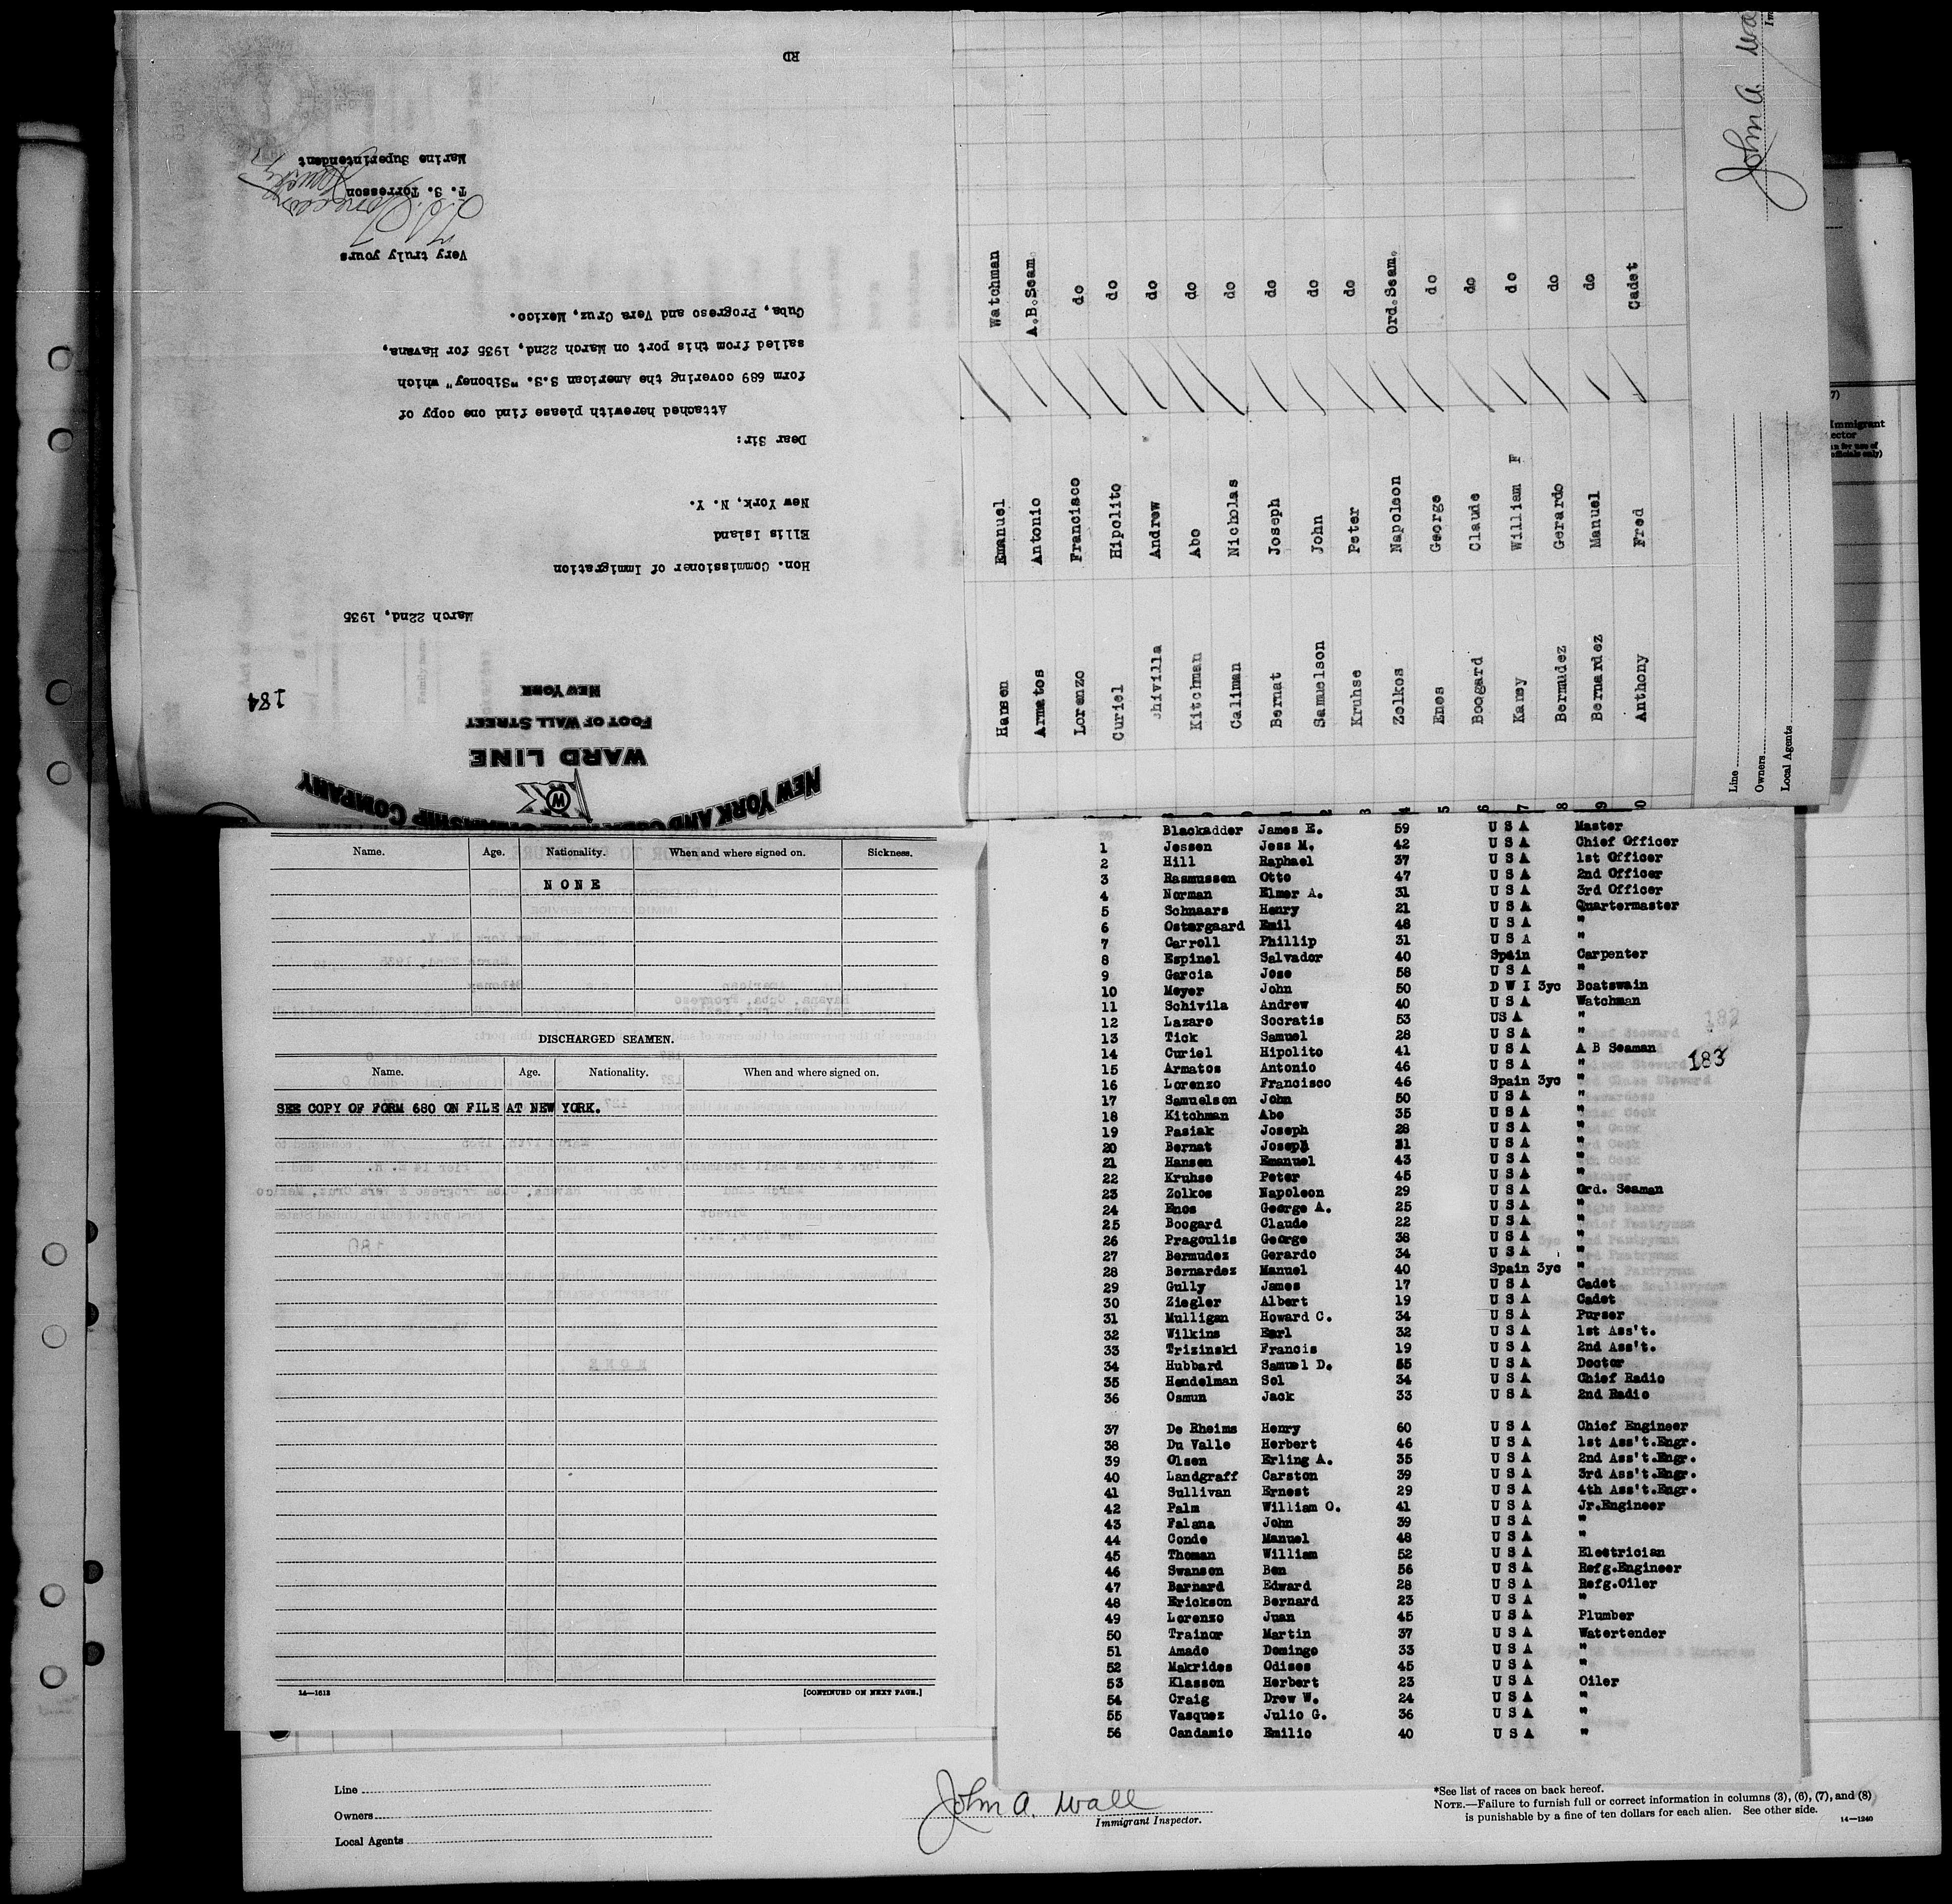 NEW YORK AND CUBA MAIL STEAMSHIP COMPANY
W
WARD LINE
FOOT OF WALL STREET
NEW YORK
184
March 22nd, 1935
Hon. Commissioner of Immigration
Ellis Island
New York, N. Y.
Dear Sir:
Attached herewith please find one copy of
form 689 covering the American S.S. "Siboney" which
sailed from this port on March 22nd, 1935 for Havana,
Cuba, Progreso and Vera Cruz, Mexico.
Very truly yours
T. S. Torresson
Marine Superintendent
RD
Hansen Emanuel Watchman
Armatos Antonio A.B.Seam.
Lorenzo Francisco do
Curiel Hipolito do
hivilla Andrew do
Kitchman Abe do
Caliman Nicholas do
Bernat Joseph do
Samuelson John do
Kruhse Peter do
Zolkos Napoleon Ord.Seam.
Enos George do
Boogard Claude do
Karey William F do
Bermudez Gerardo do
Bernardez Manuel do
Anthony Fred Cadet
Line
Owners
Local Agents
John A. Wa
Name. Age. Nationality. When and where signed on. Sickness.
NONE
DISCHARGED SEAMEN.
Name. Age. Nationality. When and where signed on.
SEE COPY OF FORM 680 ON FILE AT NEW YORK.
14—1613 [CONTINUED ON NEXT PAGE.]
Blackadder James E. 59 U S A Master
1 Jessen Jess M. 42 U S A Chief Officer
2 Hill Raphael 37 U S A 1st Officer
3 Rasmussen Otto 47 U S A 2nd Officer
4 Norman Elmer A. 31 U S A 3rd Officer
5 Schnaars Henry 21 U S A Quartermaster
6 Ostergaard Emil 48 U S A "
7 Carroll Phillip 31 U S A "
8 Espinel Salvador 40 Spain Carpenter
9 Garcia Jose 58 U S A "
10 Meyer John 50 D W I 3yc Boatswain
11 Schivila Andrew 40 U S A Watchman
12 Lazaro Socratis 53 US A "
13 Tick Samuel 28 U S A "
14 Curiel Hipolito 41 U S A A B Seaman
183
15 Armatos Antonio 46 U S A "
16 Lorenzo Francisco 46 Spain 3yc "
17 Samuelson John 50 U S A "
18 Kitchman Abe 35 U S A "
19 Pasiak Joseph 28 U S A "
20 Bernat Joseph 31 U S A "
21 Hansen Emanuel 43 U S A "
22 Kruhse Peter 45 U S A "
23 Zolkos Napoleon 29 U S A Ord. Seaman
24 Enos George A. 25 U S A "
25 Boogard Claude 22 U S A "
26 Pragoulis George 38 U S A "
27 Bermudez Gerardo 34 U S A "
28 Bernardez Manuel 40 Spain 3yc "
29 Gully James 17 U S A Cadet
30 Ziegler Albert 19 U S A Cadet
31 Mulligan Howard C. 34 U S A Purser
32 Wilkins Earl 32 U S A 1st Ass't.
33 Trizinski Francis 19 U S A 2nd Ass't.
34 Hubbard Samuel D. 55 U S A Doctor
35 Hendelman Sol 34 U S A Chief Radio
36 Osmun Jack 33 U S A 2nd Radio
37 De Rheims Henry 60 U S A Chief Engineer
38 Du Valle Herbert 46 U S A 1st Ass't.Engr.
39 Olsen Erling A. 35 U S A 2nd Ass't.Engr.
40 Landgraff Carston 39 U S A 3rd Ass't.Engr.
41 Sullivan Ernest 29 U S A 4th Ass't.Engr.
42 Palm William O. 41 U S A Jr.Engineer
43 Falana John 39 U S A "
44 Conde Manuel 48 U S A "
45 Thoman William 52 U S A Electrician
46 Swanson Ben 56 U S A Refg.Engineer
47 Barnard Edward 28 U S A Refg.Oiler
48 Erickson Bernard 23 U S A "
49 Lorenzo Juan 45 U S A Plumber
50 Trainor Martin 37 U S A Watertender
51 Amado Domingo 33 U S A "
52 Makrides Odises 45 U S A "
53 Klasson Herbert 23 U S A Oiler
54 Craig Drew W. 24 U S A "
55 Vasquez Julio G. 36 U S A "
56 Candamio Emilio 40 U S A "
Line
Owners
Local Agents
John A. Wall
Immigrant Inspector.
*See list of races on back hereof.
NOTE.—Failure to furnish full or correct information in columns (3), (6), (7), and (8)
is punishable by a fine of ten dollars for each alien. See other side.
14—1240